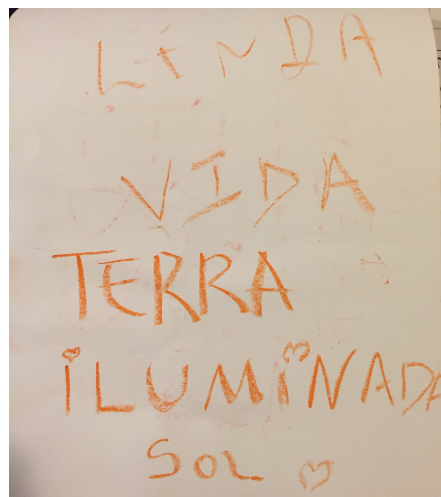 LINDA
VIDA
TERRA
iLUMiNADA
SOL